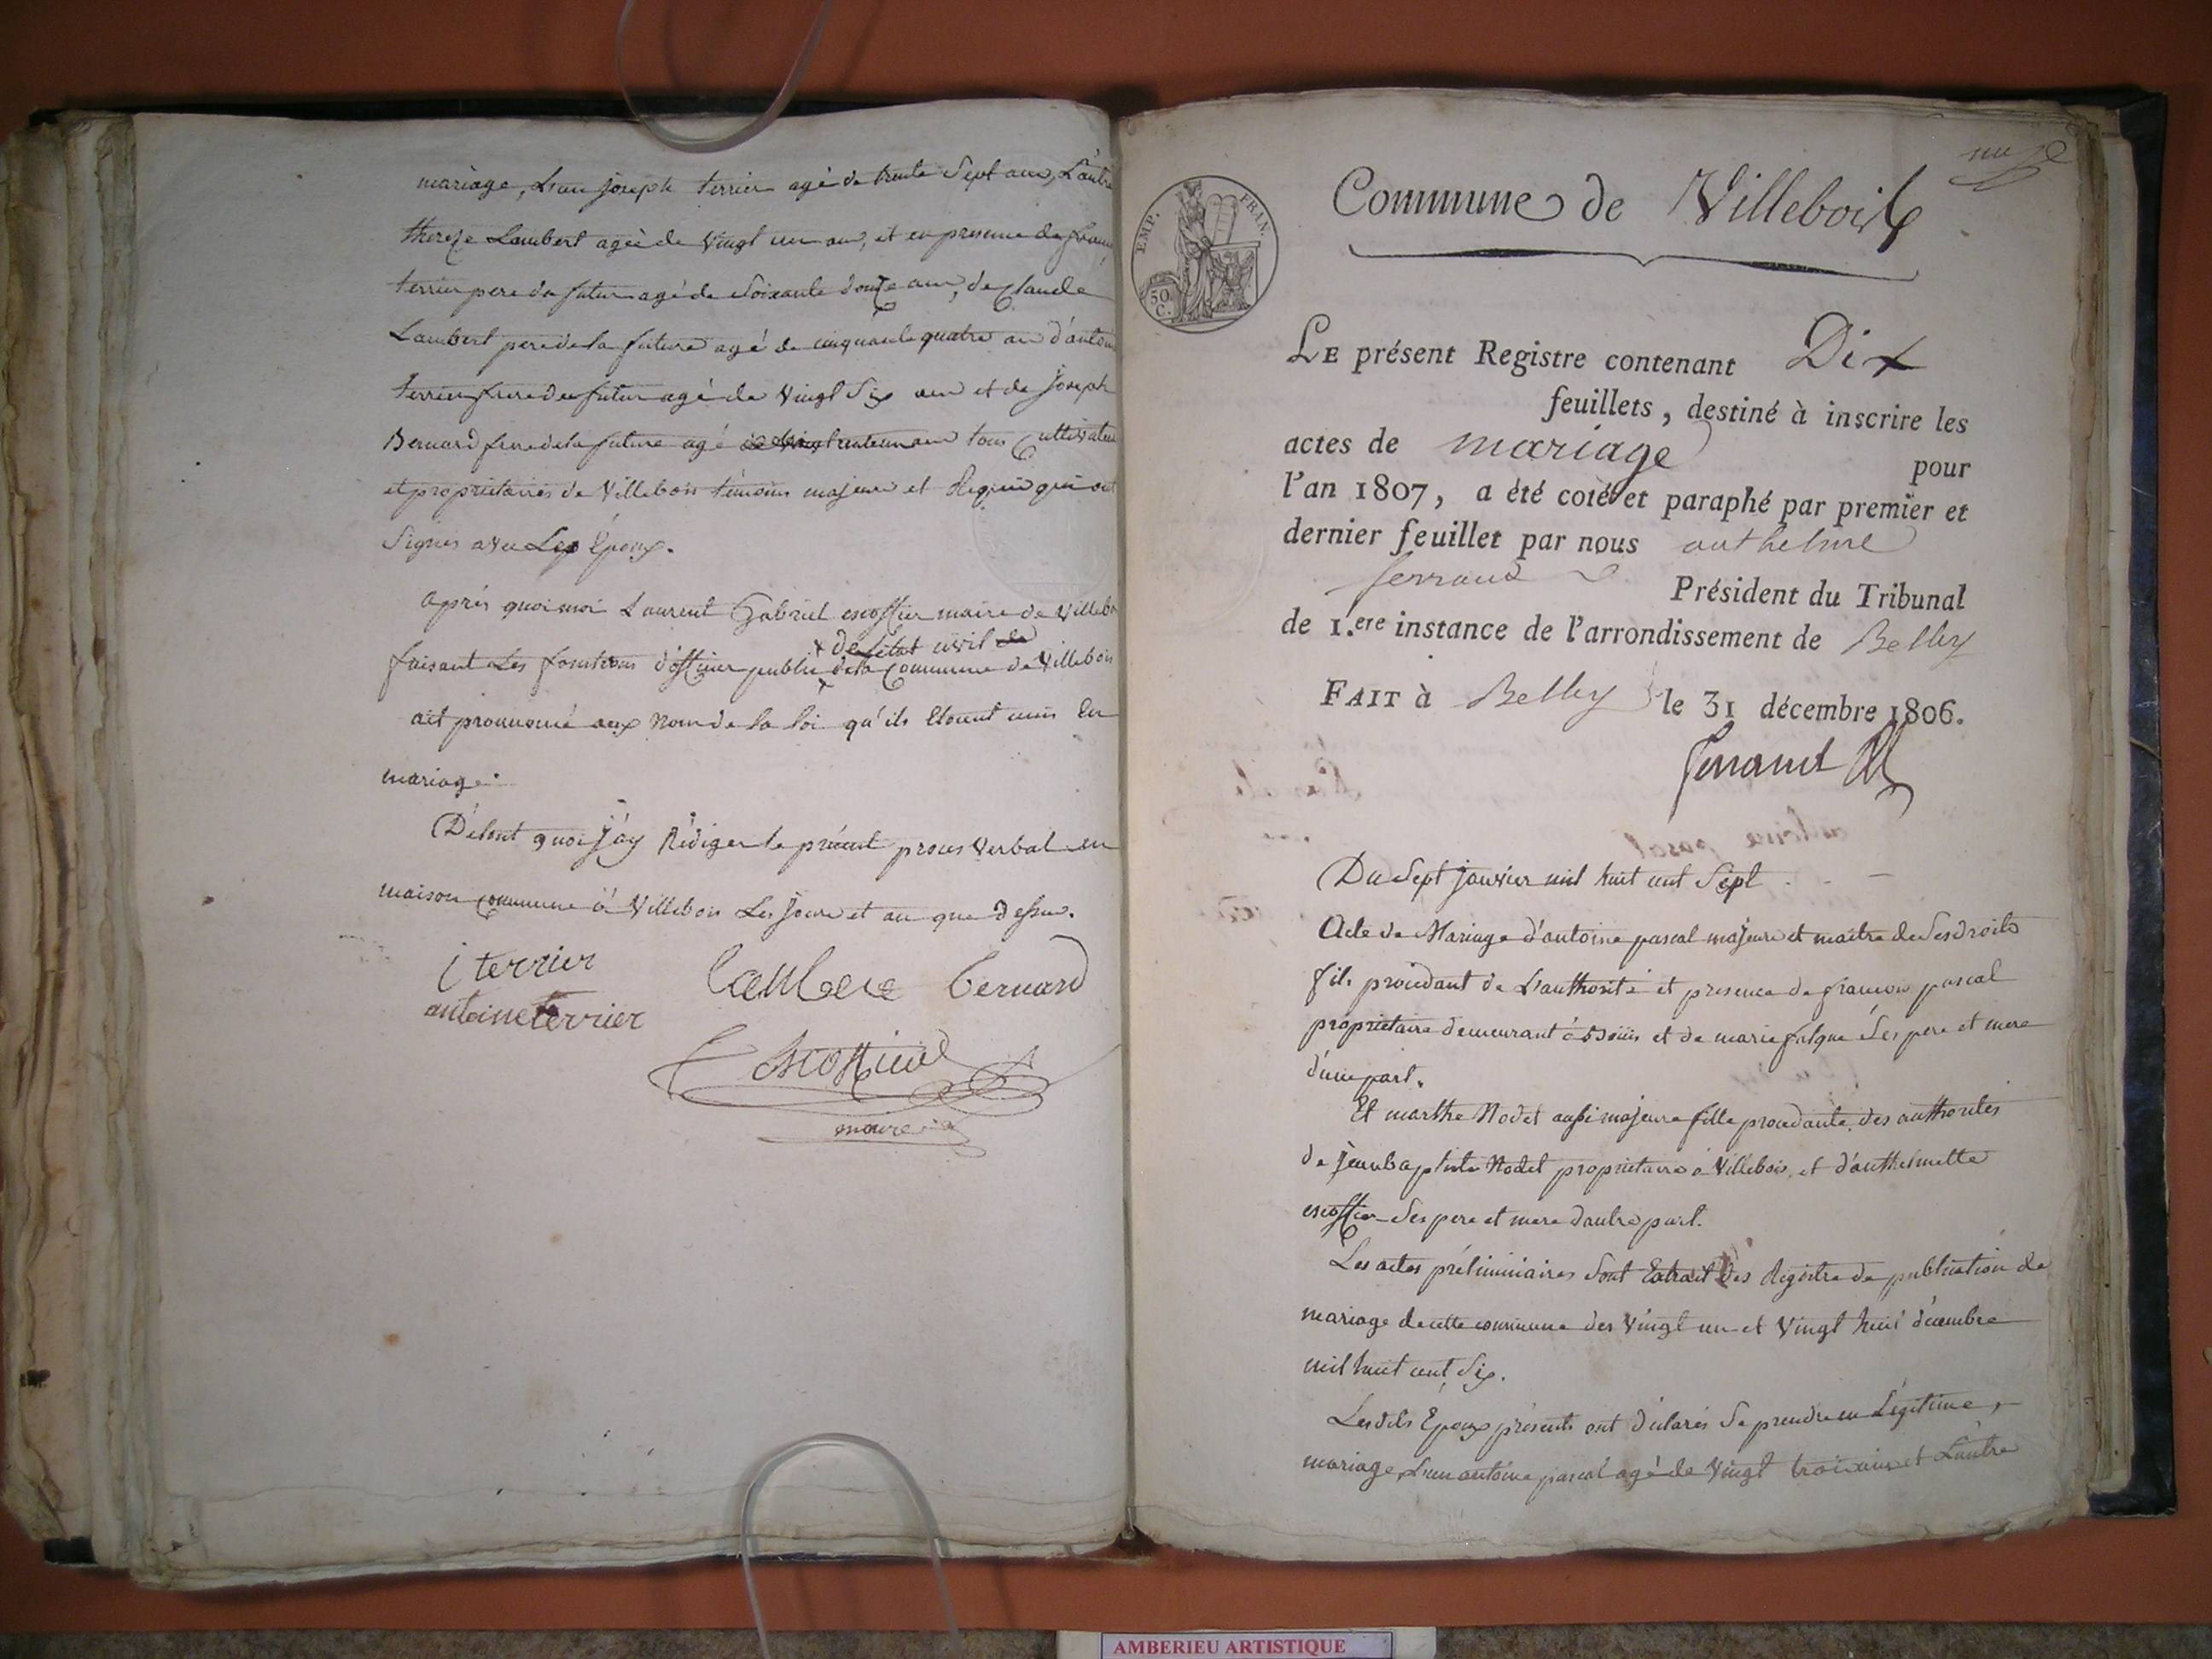 mariage, L'un joseph terrier agé de trente Sept ans, L'autre
thereze Lambert ageè de Vingt un ans, et en presence de
terrier pere du futur agé de Soixante douze ans, de Claude
Lambert pere de la future agé de cinquante quatre ans d'antoine
terrier frere du futur agé de Vingt Six ans et de joseph
Bernard frere de la future agé tous Cultivateurs
et proprietaires de Villebois témoins majeurs et Requis qui ont
Signés avec Les Epoux.
après quoi moi Laurent Gabriel escoffier maire de Villebois
de l'état civil
faisant Les fonctions d'officier public de la Commune de Villebois
ait prononcé aux Nom de la loi qu'ils Etoient unis En
mariage.
Détout quoi j'ay Rédiger le présent procès Verbal en
maison Commune à Villebois Les jours et an que dessus.
j terrier
Lambert bernard
antoine terrier
Escoffier
maire
Commune de Villebois
EMP. FRAN.
50 C.
LE présent Registre contenant Dix
feuillets, destiné à inscrire les
actes de mariage pour
l'an 1807, a été coté et paraphé par premier et
dernier feuillet par nous anthelme
ferrand Président du Tribunal
de 1.ere instance de l'arrondissement de Belley
FAIT à Belley le 31 décembre 1806.
ferrand
Du Sept janvier mil huit cent Sept
Acte de Mariage d'antoine pascal majeur et maitre de Ses droits
fils procédant de L'authorité et presence de francois pascal
proprietaire demeurant à et de marie falque Ses pere et mere
d'une part.
Et marthe Nodet aussi majeure fille procedante des authorités
de jean baptiste Nodet proprietaire à Villebois, et d'anthelmette
escoffier Ses pere et mere d'autre part.
Les actes préliminaires Sont Extrait des Registre de publication de
mariage de cette commune des Vingt un et Vingt huit décembre
mil huit cent Six.
Lesdits Epoux présents ont déclarés Se prendre en Légitime
mariage, L'un antoine pascal agé de Vingt trois ans et L'autre
AMBERIEU ARTISTIQUE